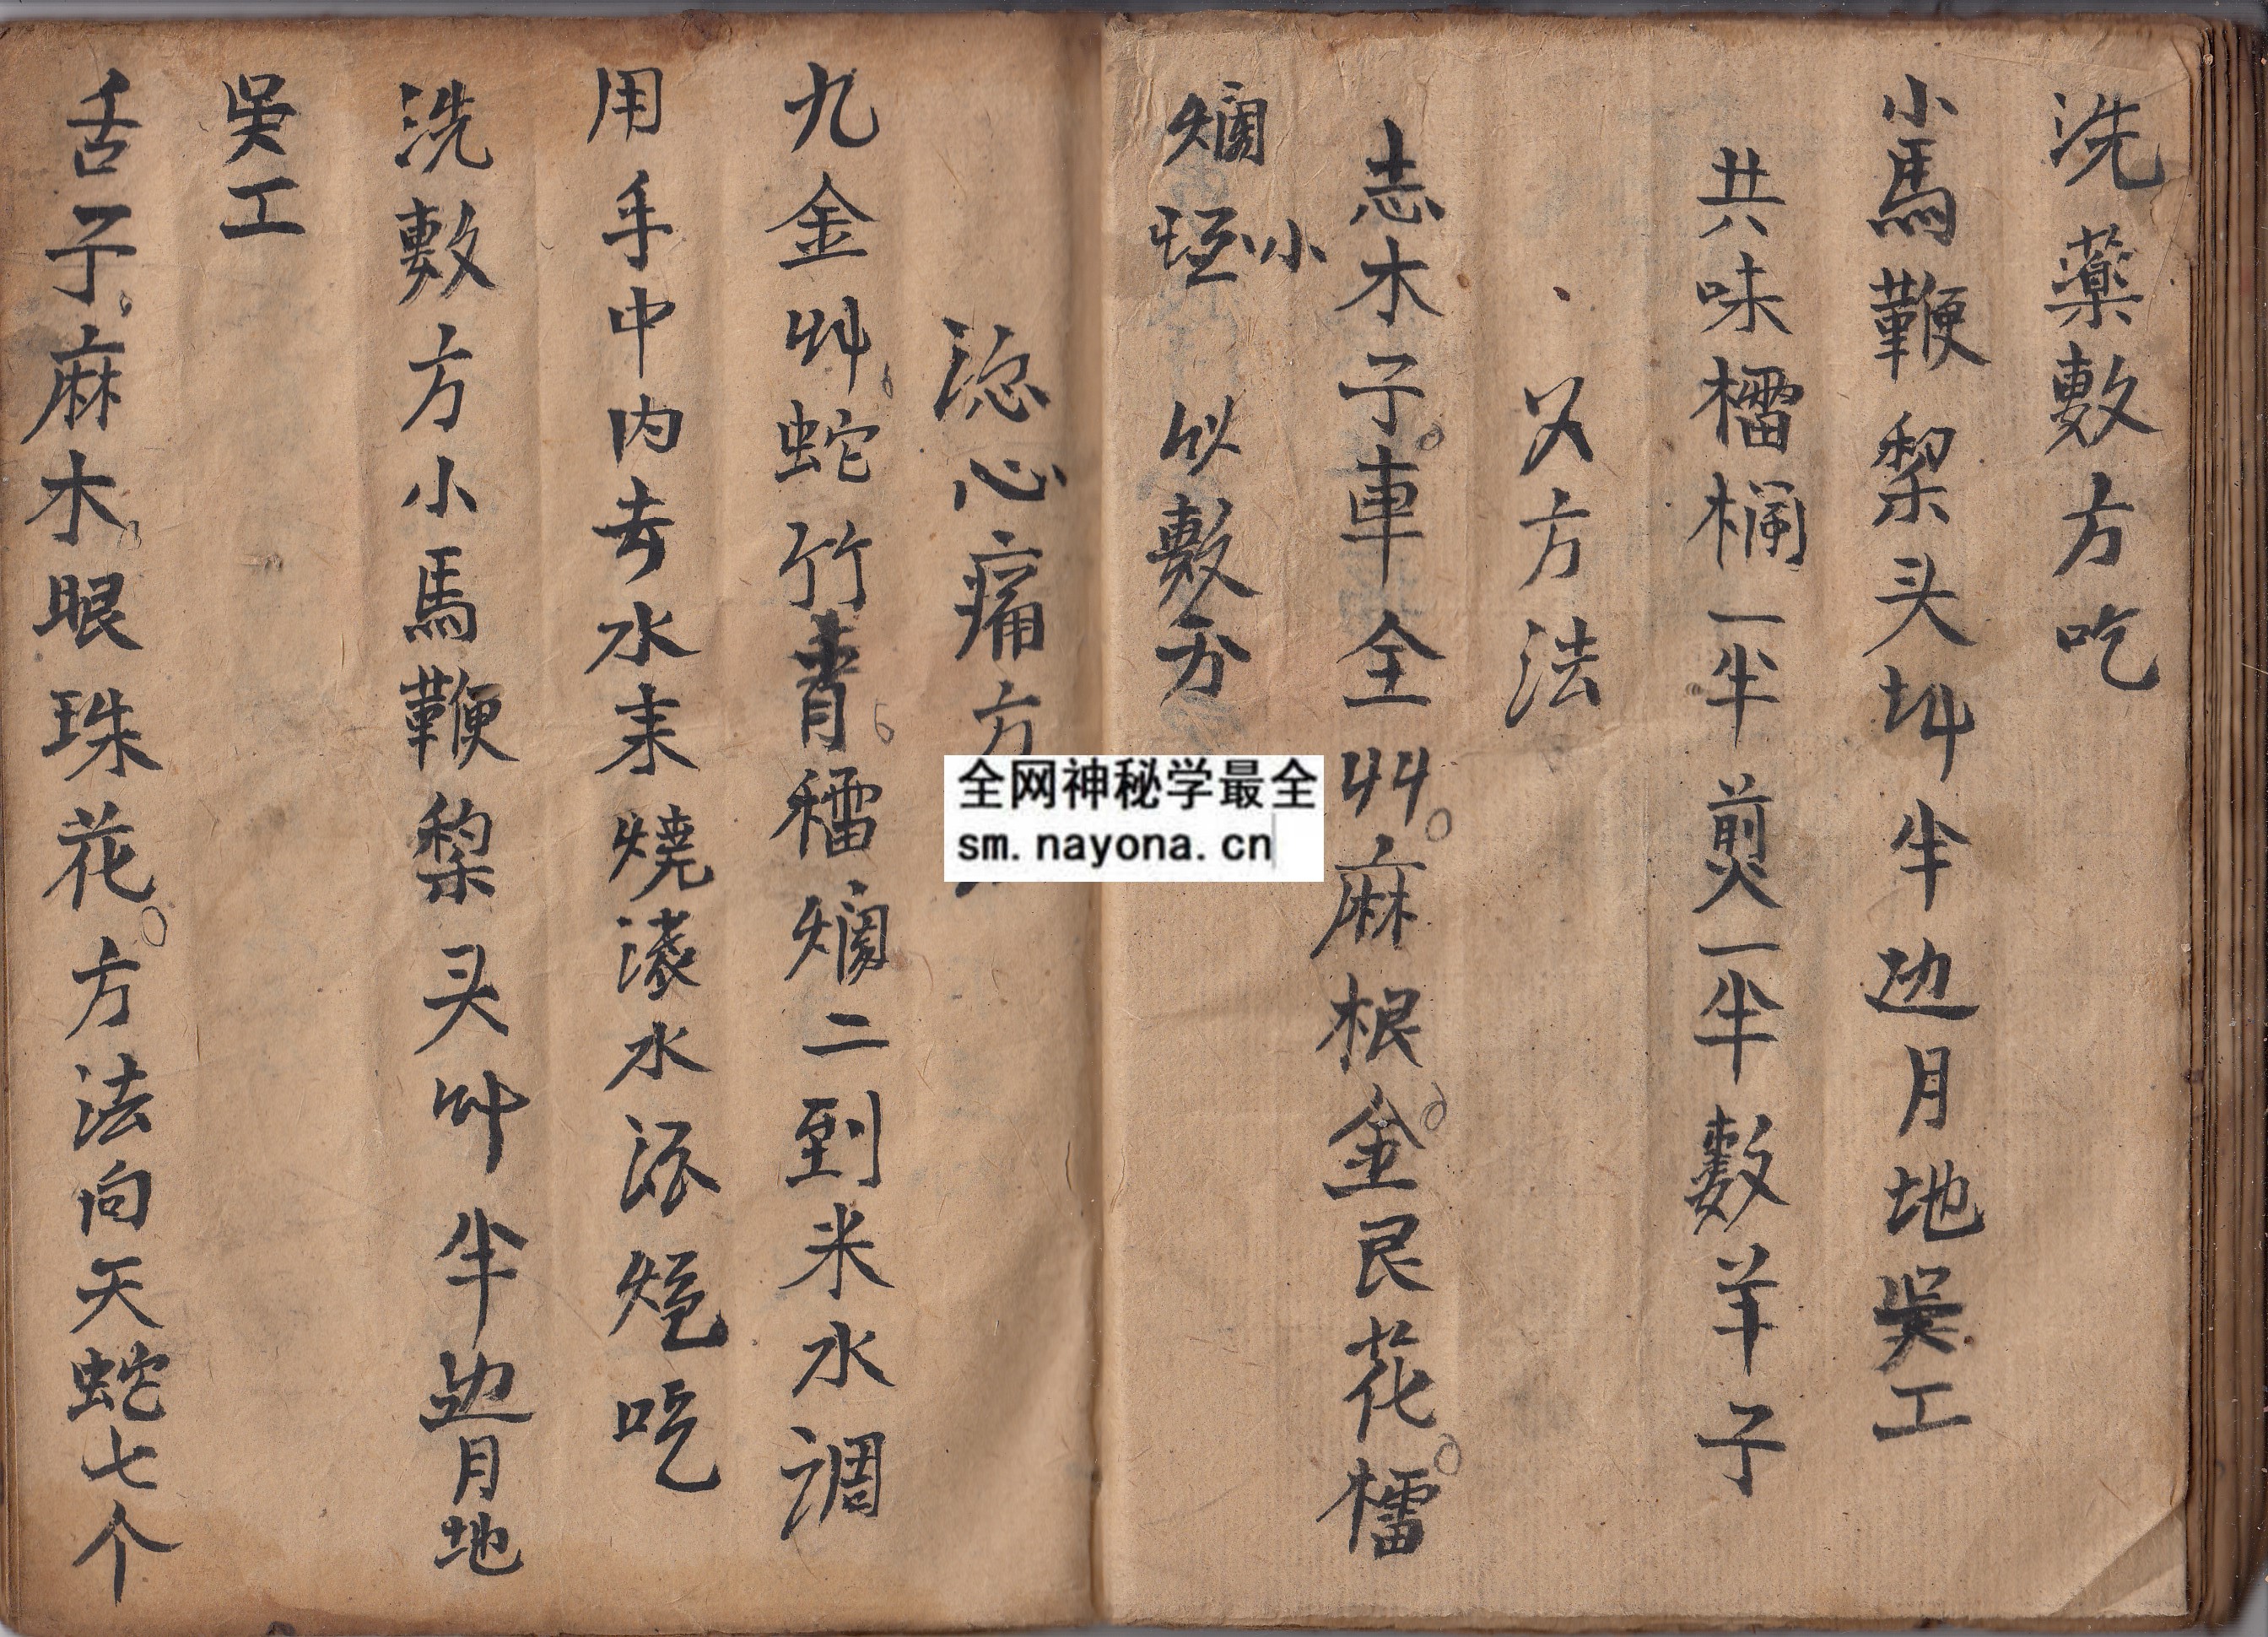 洗藥敷方吃
小馬鞭犂头艸半边月地吳工
共味檑欗一半煎一半敷羊子
又方法
志木子車全艸麻根金艮花檑
爛 小 似敷方
心痛方
九金艸蛇竹青檑爛二到米水調
用手中内去水耒燒滚水吃
洗敷方小馬鞭犂头艸半边月地
吳工
舌子麻木眼珠花方法向天蛇七个
全网神秘学最全
sm.nayona.cn